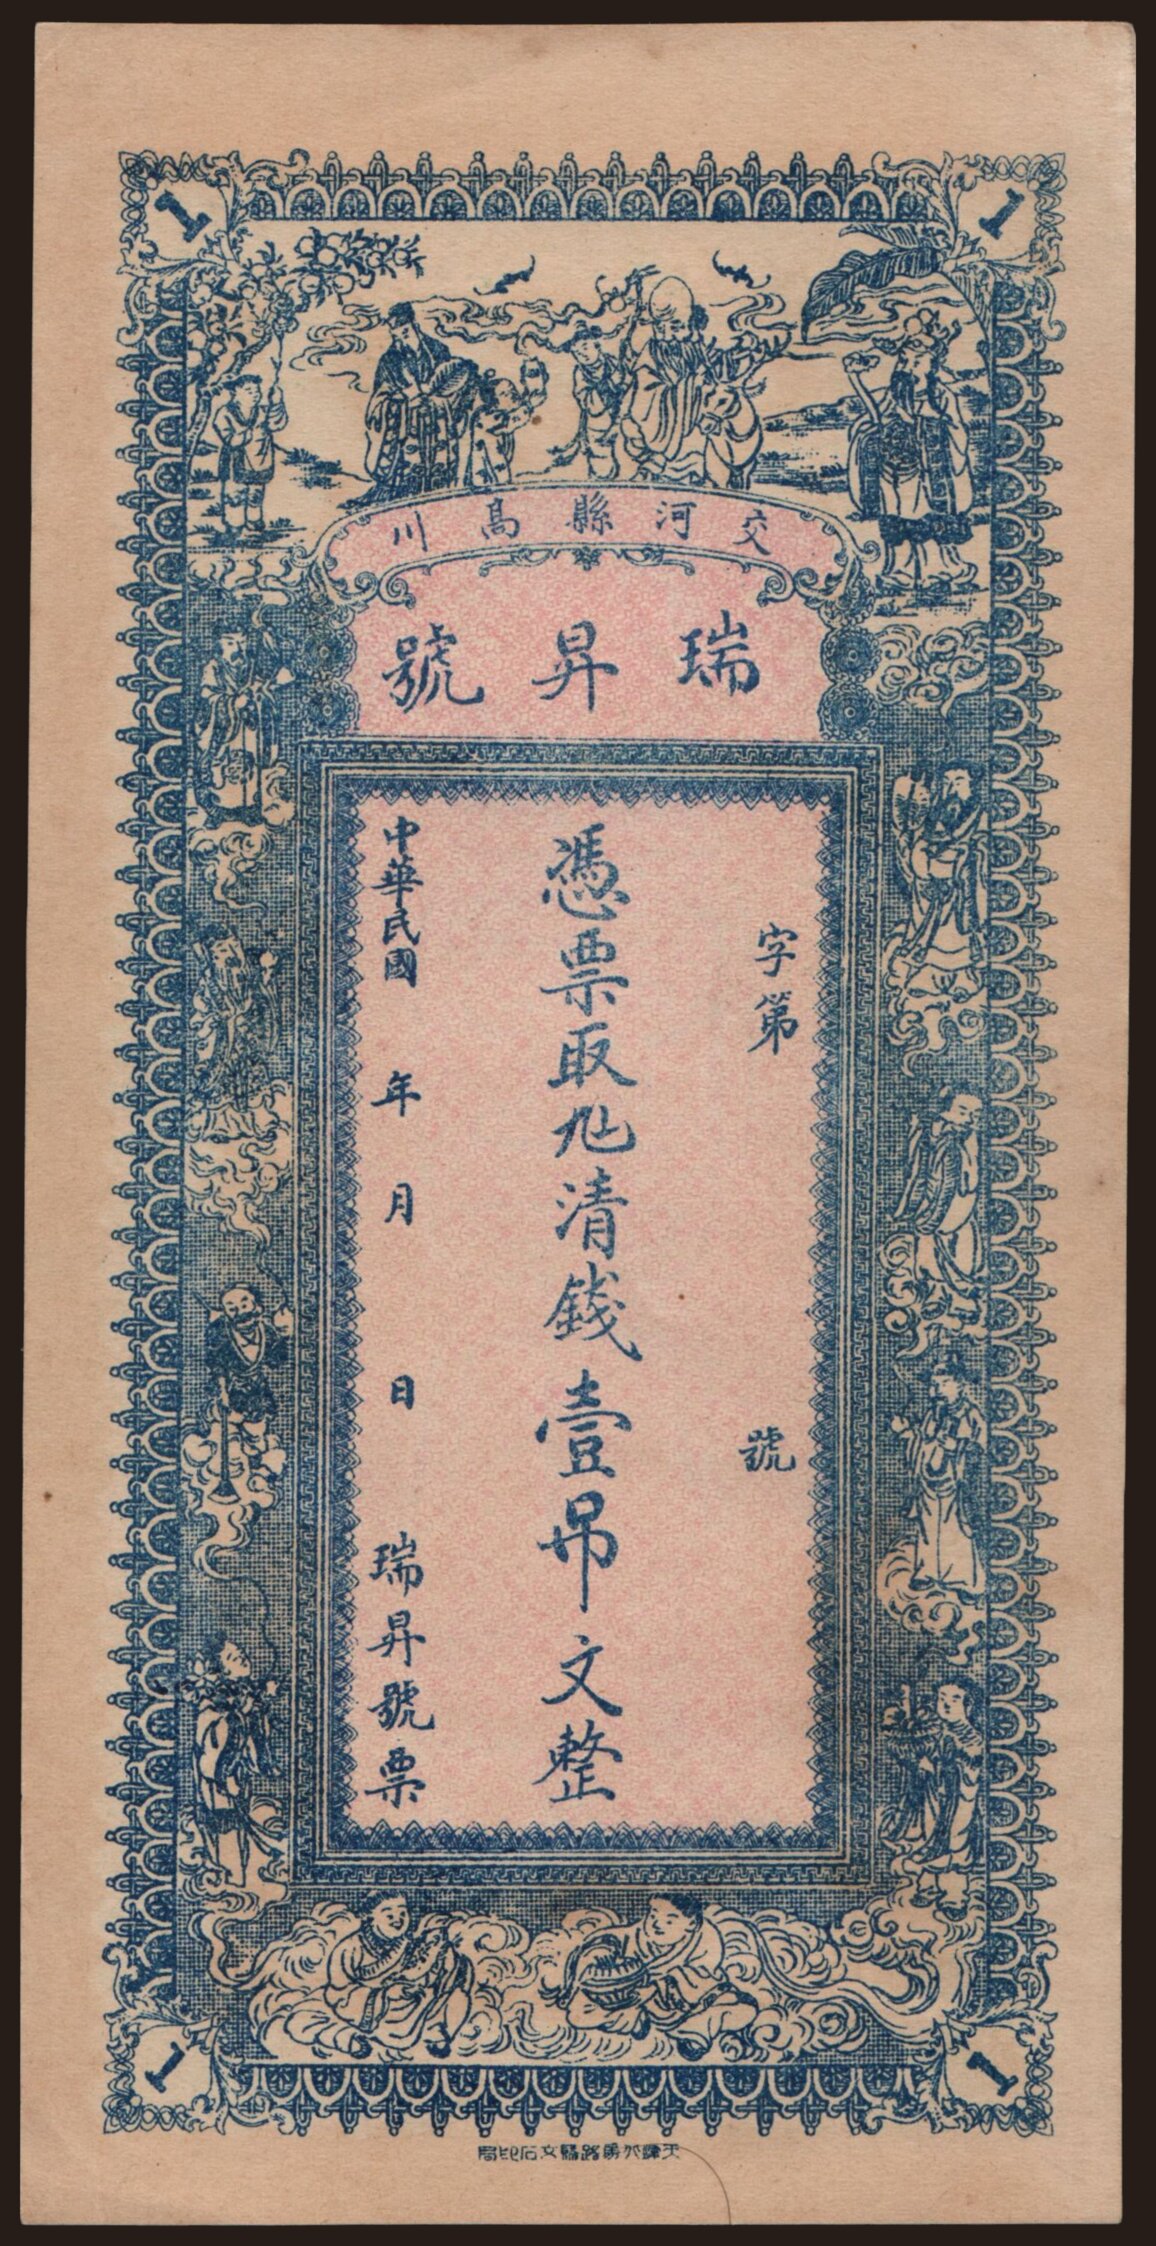 1 1
交河縣高川
瑞昇號
字第 號
憑票取九七清錢壹吊文整
中華民國 年 月 日 瑞昇號票
1 1
石印局